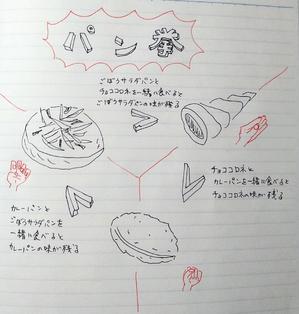 パン拳
ごぼうサラダパンと
チョココロネを一緒に食べると
ごぼうサラダパンの味が残る
チョココロネと
カレーパンを一緒に食べると
チョココロネの味が残る
カレーパンと
ごぼうサラダパンを
一緒に食べると
カレーパンの味が残る